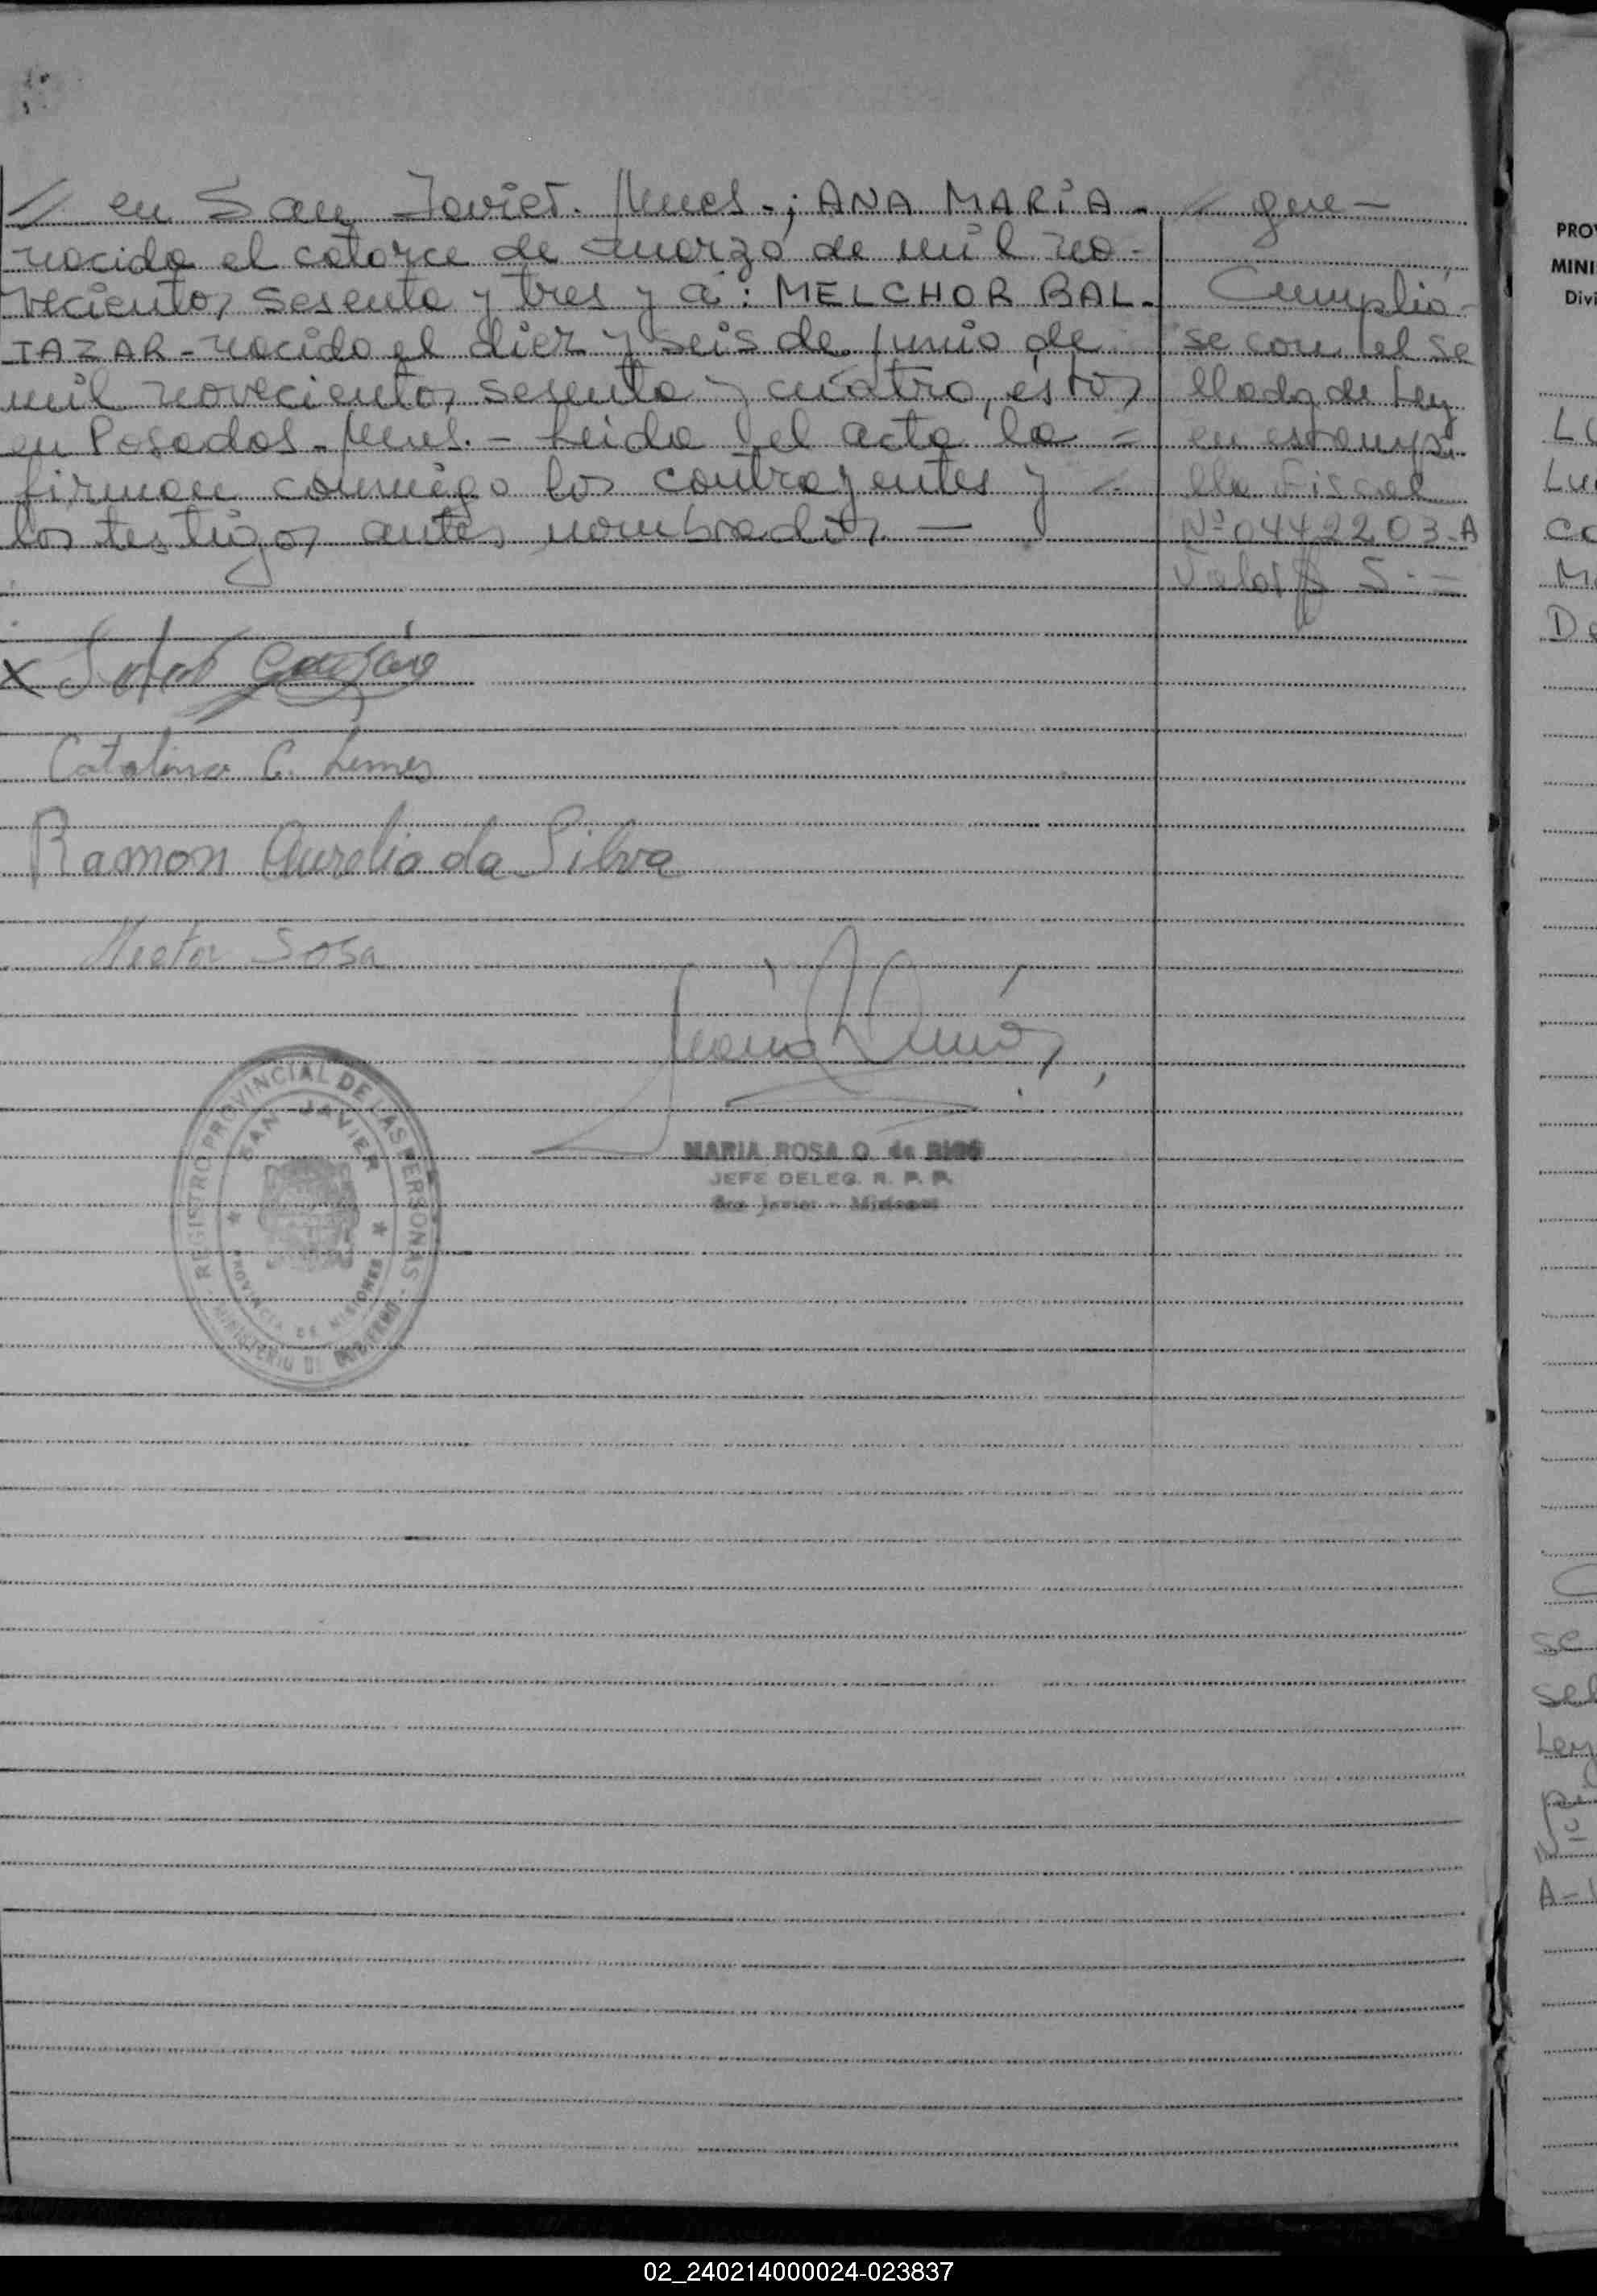 // en San Javier. Mnes-; ANA MARIA -
nacida el catorce de marzo de mil no-
vecientos sesenta y tres y a: MELCHOR BAL-
TAZAR- nacido el diez y seis de junio de
mil novecientos sesenta y cuatro, éstos
en Posadas- Mnes. - Leida el acta la =
firman conmigo los contrayentes y
los testigos antes nombrados. —
// que -
Cumplió-
se con el se
llado de Ley
en estampi
lla Fiscal
Nº 0442203-A
Valor $ 5.-
X
Catalina C. Lemes
Ramon Aurelio da Silva
Hector Sosa
MARIA ROSA O. de RIOS
JEFE DELEG. R. P. P.
San Javier - Misiones
REGISTRO PROVINCIAL DE LAS PERSONAS
SAN JAVIER
PROVINCIA DE MISIONES
MINISTERIO DE GOBIERNO
PRO
MINI
Divi
Lu
Co
M
De
se
sel
Ley
A-
02_240214000024-023837